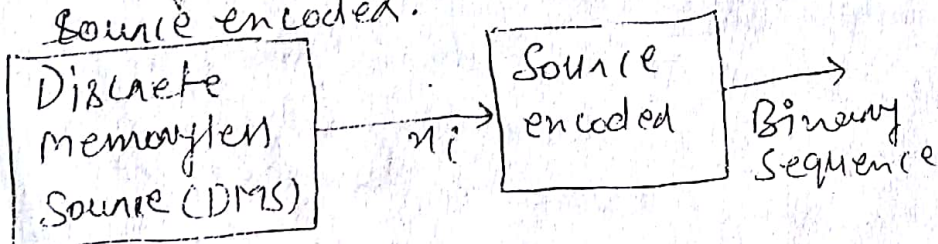 Source encoded.
Discrete
memoryless
Source (DMS)
xi
Source
encoded
Binary
Sequence